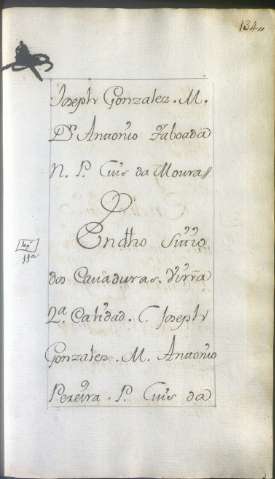 134..
Joseph Gonzalez. M.
Dn Antonio Taboada
N. P. Luis da Moura
En dtho Sittio
4ª
11ª
dos Cavaduras. Tirra
2ª. Calidad. L. Joseph
Gonzalez. M. Antonio
Pereira. P. Luis da